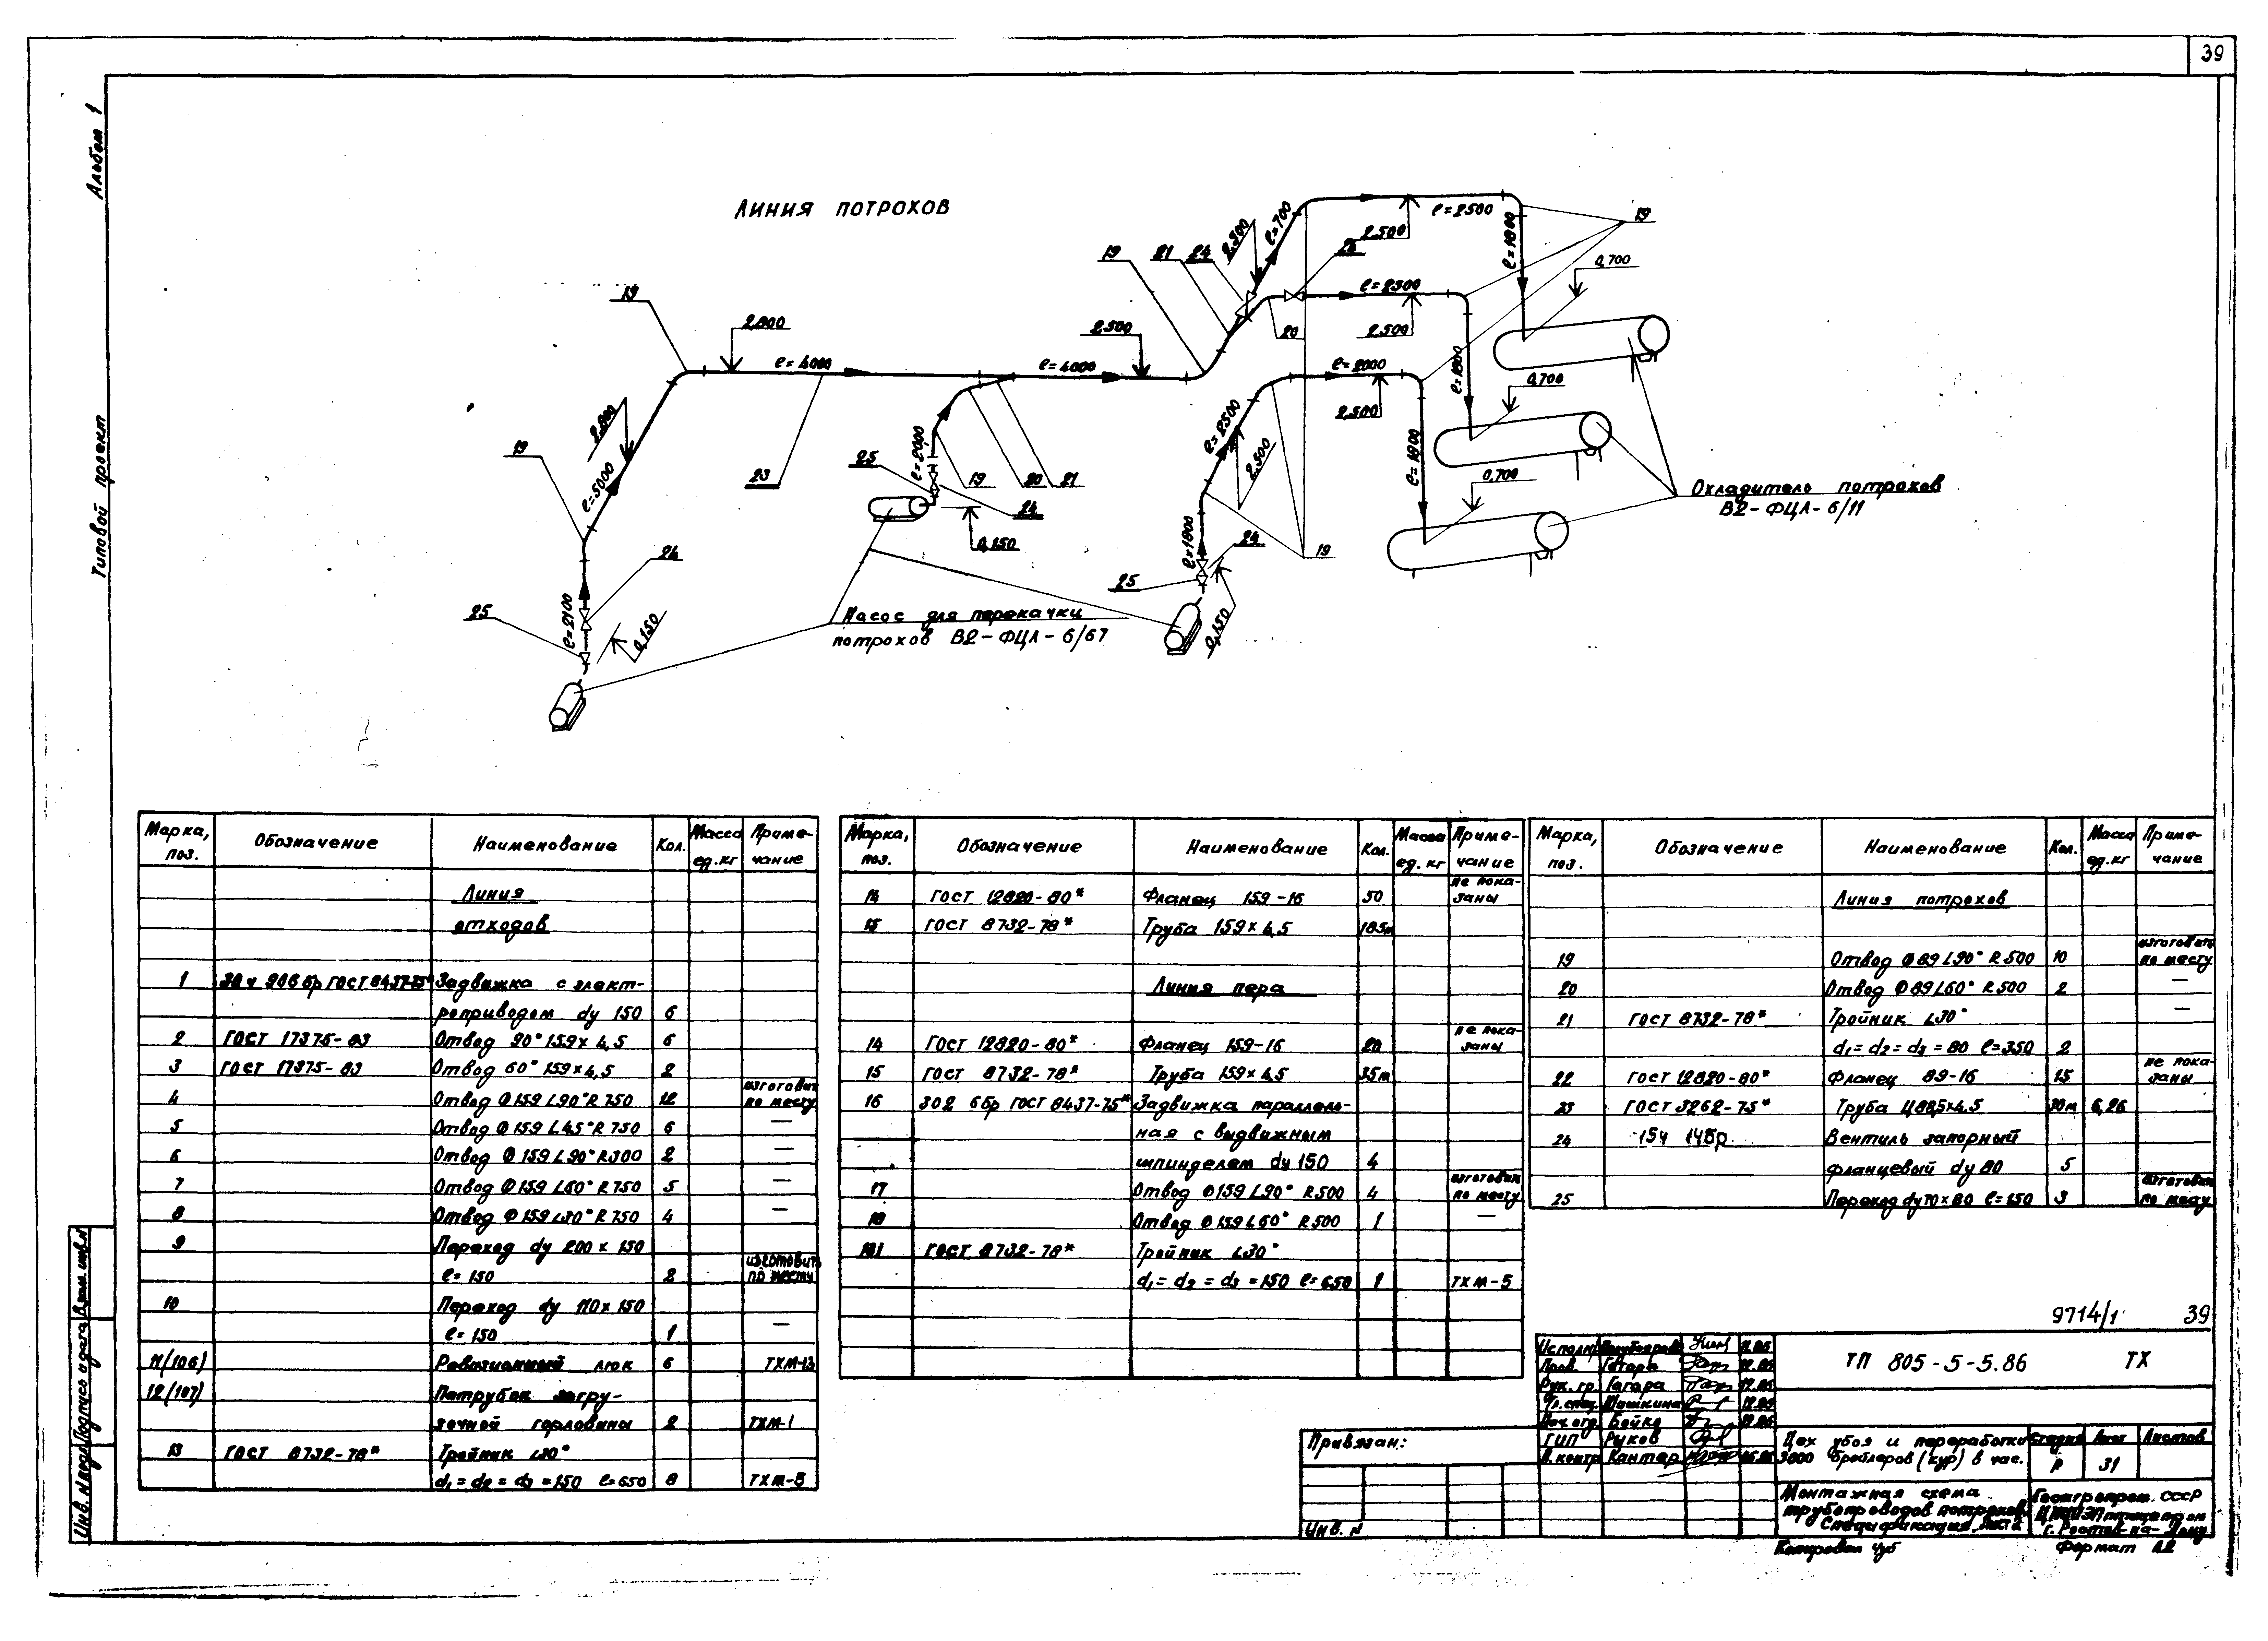 39
Альбом 1
Типовой проект
ЛИНИЯ ПОТРОХОВ
19
2,800
ℓ=4000
ℓ=4000
2,500
19
21
24
2,500
ℓ=700
2,500
ℓ=2500
ℓ=1800
19
0,700
24
ℓ=2300
2,500
20
ℓ=1800
0,700
ℓ=2000
2,500
ℓ=1800
0,700
19
2,800
ℓ=5000
23
25
ℓ=2000
19
20
21
24
0,150
ℓ=2500
2,500
19
24
25
ℓ=1800
0,150
24
25
ℓ=2100
0,150
Охладитель потрохов
В2-ФЦЛ-6/11
Насос для перекачки
потрохов В2-ФЦЛ-6/67
Марка, поз. Обозначение Наименование Кол. Масса ед.кг Примечание
Линия
отходов
1 30ч 906бр ГОСТ 8437-75* Задвижка с элект-
роприводом dу 150 6
2 ГОСТ 17375-83 Отвод 90° 159×4,5 6
3 ГОСТ 17375-83 Отвод 60° 159×4,5 2
4 Отвод Ф159 L90° R750 12 изготовить по месту
5 Отвод Ф159 L45° R750 6 —
6 Отвод Ф159 L90° R300 2 —
7 Отвод Ф159 L60° R750 5 —
8 Отвод Ф159 L30° R750 4 —
9 Переход dу 200×150
ℓ=150 2 изготовить по месту
10 Переход dу 110×150
ℓ=150 1 —
11(106) Ревизионный люк 6 ТХМ-13
12(107) Патрубок загру-
зочной горловины 2 ТХМ-1
13 ГОСТ 8732-78* Тройник L30°
d₁=d₂=d₃=150 ℓ=650 8 ТХМ-5
Марка, поз. Обозначение Наименование Кол. Масса ед.кг Примечание
14 ГОСТ 12820-80* Фланец 159-16 50 не показаны
15 ГОСТ 8732-78* Труба 159×4,5 185м
Линия пера
14 ГОСТ 12820-80* Фланец 159-16 20 не показаны
15 ГОСТ 8732-78* Труба 159×4,5 35м
16 302 6бр ГОСТ 8437-75* Задвижка параллель-
ная с выдвижным
шпинделем dу 150 4
17 Отвод Ф159 L90° R500 4 изготовить по месту
18 Отвод Ф159 L60° R500 1 —
181 ГОСТ 8732-78* Тройник L30°
d₁=d₂=d₃=150 ℓ=650 1 ТХМ-5
Марка, поз. Обозначение Наименование Кол. Масса ед.кг Примечание
Линия потрохов
19 Отвод Ф89 L90° R500 10 изготовить по месту
20 Отвод Ф89 L60° R500 2 —
21 ГОСТ 8732-78* Тройник L30° —
d₁=d₂=d₃=80 ℓ=350 2
22 ГОСТ 12820-80* Фланец 89-16 15 не показаны
23 ГОСТ 3262-75* Труба Ц88,5×4,5 30м 6,26
24 15ч 14бр Вентиль запорный
фланцевый dу 80 5
25 Переход dу70×80 ℓ=150 3 изготовить по месту
9714/1 39
ТП 805-5-5.86 ТХ
Исполн. 12.85
Пров. Гагара 12.85
Рук. гр. Гагара 12.85
Гл. спец. Шашкина 12.85
Нач. отд. Бойко 12.85
ГИП Рыков
Н. контр Кантер
Привязан:
Инв. N
Цех убоя и переработки
3000 бройлеров (кур) в час.
Стадия Лист Листов
Р 31
Монтажная схема
трубопроводов потрохов.
Спецификация.
Госагропром. СССР
г. Ростов-на-Дону
Копировал Чуб
Формат А2
Инв. N подл. Подпись и дата Взам. инв. N